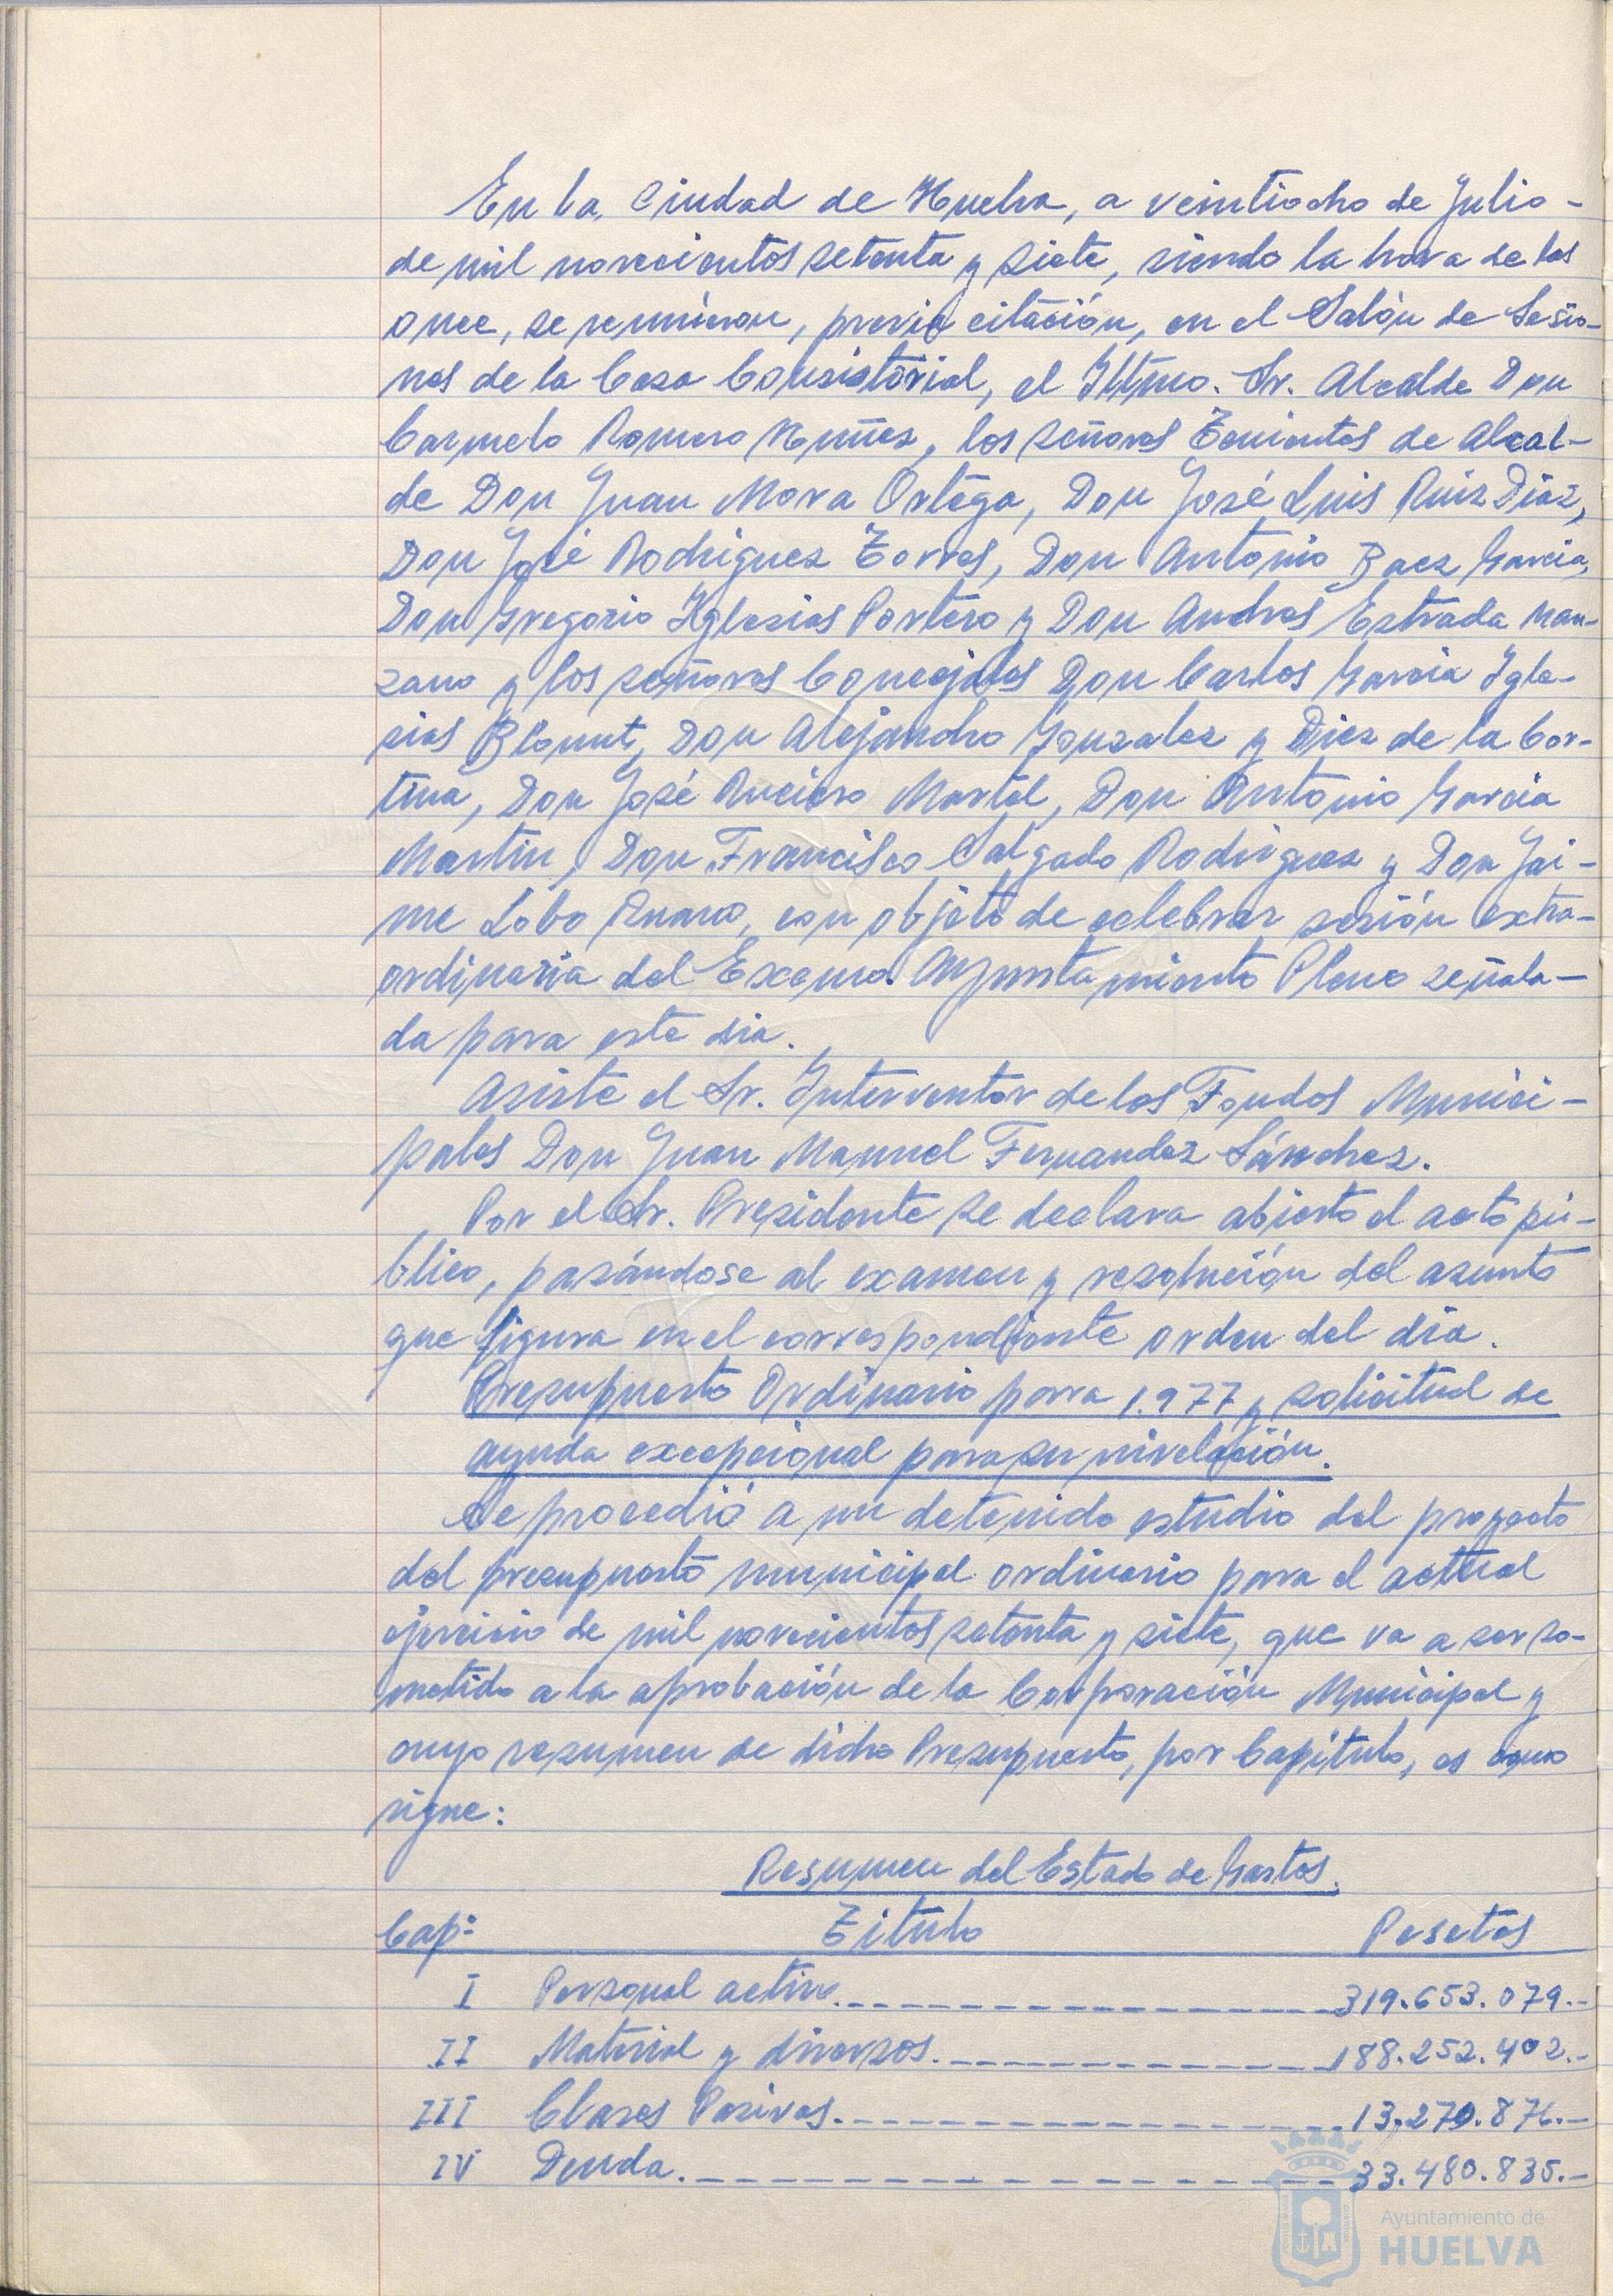 En la Ciudad de Huelva, a veintiocho de Julio -
de mil novecientos setenta y siete, siendo la hora de las
once, se reunieron, previa citación, en el Salón de Sesio-
nes de la Casa Consistorial, el Iltmo. Sr. Alcalde Don
Carmelo Romero Nuñez, los señores Tenientes de Alcal-
de Don Juan Mora Ortega, Don José Luis Ruiz Díaz,
Don José Rodriguez Torres, Don Antonio Baez Garcia,
Don Gregorio Iglesias Portero y Don Andres Estrada Man-
zano y los señores Concejales Don Carlos Garcia Igle-
sias Blount, Don Alejandro Gonzalez y Diez de la Cor-
tina, Don José Ruciero Martel, Don Antonio Garcia
Martin, Don Francisco Salgado Rodriguez y Don Jai-
me Lobo Ruano, con objeto de celebrar sesión extra-
ordinaria del Excemo. Ayuntamiento Pleno señala-
da para este dia.
Asiste el Sr. Interventor de los Fondos Munici-
pales Don Juan Manuel Fernandez Sánchez.
Por el Sr. Presidente se declara abierto el acto pú-
blico, pasándose al examen y resolución del asunto
que figura en el correspondiente orden del día.
Presupuesto Ordinario para 1.977 y solicitud de
ayuda excepcional para su nivelación.
Se procedió a un detenido estudio del proyecto
del presupuesto municipal ordinario para el actual
ejercicio de mil novecientos setenta y siete, que va a ser so-
metido a la aprobación de la Corporación Municipal y
cuyo resumen de dicho Presupuesto, por Capítulo, es como
sigue:
Resumen del Estado de Gastos.
Capº Titulo Pesetas
I Personal activo. 319.653.079.-
II Material y diversos. 188.252.402.-
III Clases Pasivas. 13.270.876.-
IV Deuda. 33.480.835.-
Ayuntamiento de
HUELVA